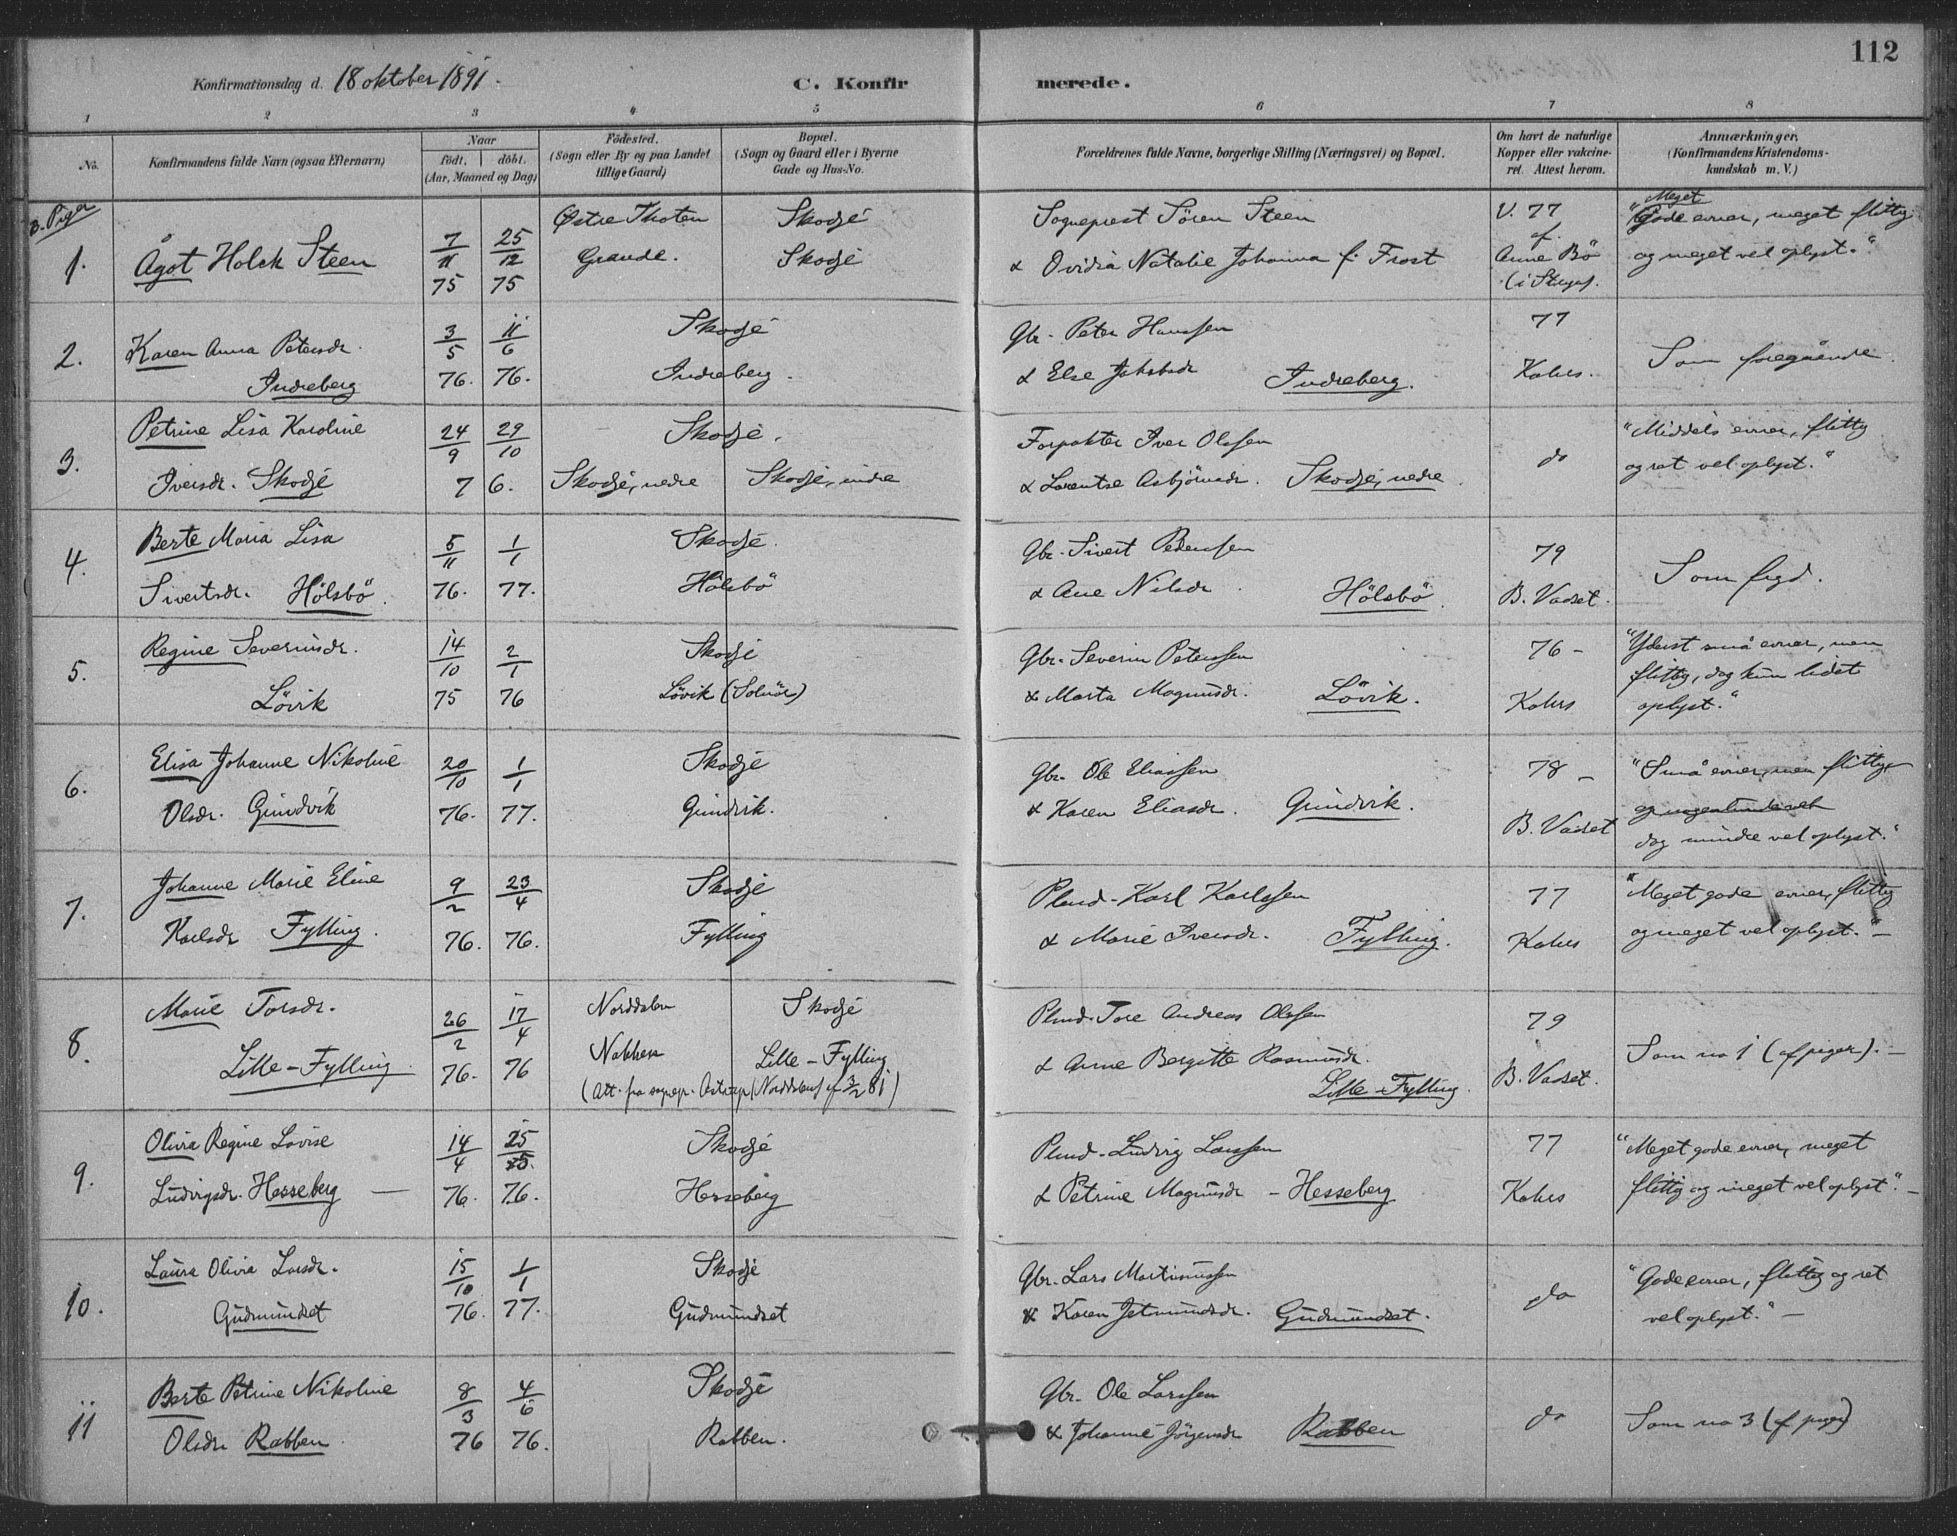 112
Konfirmationsdag d. 18 oktober 1891.
C. Konfirmerede.
1 2 3 4 5 6 7 8
No.
Konfirmandens fulde Navn (ogsaa Efternavn)
Naar
födt. döbt.
(Aar, Maaned og Dag)
Födested.
(Sogn eller By og paa Landet
tillige Gaard)
Bopæl.
(Sogn og Gaard eller i Byerne
Gade og Hus-No.
Forældrenes fulde Navne, borgerlige Stilling (Næringsvei) og Bopæl.
Om havt de naturlige
Kopper eller vakcine-
ret. Attest herom.
Anmærkninger,
(Konfirmandens Kristendoms-
kundskab m. V.)
B. Piger
1. Ågot Holck Steen
7/11 75 25/12 75
Østre Thoten
Grande.
Skodje
Skodje
Sogneprest Sören Steen
& Ovidia Natalie Johanna f. Frost
V. 77
af
Anne Bö
"Meget
Gode evner, meget flittig
og meget vel oplyst."
2. Karen Anna Petersdr.
Indreberg
3/5 76. 11/6 76.
Skodje
Indreberg.
Gbr. Peter Hanssen
& Else Jakobsdr Indreberg.
77
Kahrs.
Som foregående
3. Petrine Lisa Karoline
Iversdr. Skodje
24/9 29/10 76.
Skodje.
Skodje, nedre Skodje, indre
Forpakter Iver Olssen
& Laurentse Asbjörnsdr. Skodje, nedre
do
"Middels evner, flittig
og ret vel oplyst."
4. Berte Maria Lisa
Sivertsdr. Hölsbö.
5/11 76. 1/1 77.
Skodje.
Hölsbö
Gbr. Sivert Pederssen
& Ane Nilsdr Hölsbö.
79
B. Vadset.
Som frgd.
5. Regine Severinsdr.
Lövik
14/10 75 2/1 76
Skodje
Lövik (Solnör)
Gbr. Severin Peterssen
& Marta Magnusdr. Lövik.
76 -
Kahrs
"Yderst små evner, men
flittig, dog kun lidet
oplyst."
6. Elisa Johanne Nikoline
Olsdr. Grindvik
20/10 76. 1/1 77.
Skodje
Grindvik.
Gbr. Ole Eliassen
& Karen Eliasdr. Grindvik.
78 -
B. Vadset
"Små evner, men flittig,
og nogenlunde vel
dog mindre vel oplyst."
7. Johanne Marie Eline
Karlsdr Fylling.
9/2 76. 23/4 76.
Skodje
Fylling
Plmd. Karl Karlssen
& Marie Iversdr. Fylling.
77
Kahrs
"Meget gode evner, flittig
og meget vel oplyst." -
8. Marie Torsdr.
Lille-Fylling.
26/2 76. 17/4 76
Norddalen
Skodje
Lille-Fylling
(Att. fra sognepr. Astrup (Norddalen) af 3/2 81)
Plmd. Tore Andreas Olssen
& Anne Bergitte Rasmusdr.
Lille-Fylling.
79
B. Vadset.
Som no 1 (af piger). -
9. Olivia Regine Lovise
Ludvigsdr. Hesseberg -
14/4 76. 25/5. 76.
Skodje
Hesseberg
Plmd. Ludvig Larssen
& Petrine Magnusdr - Hesseberg
77
Kahrs
"Meget gode evner, meget
flittig og meget vel oplyst". -
10. Laura Olivia Larsdr.
Gudmundset
15/10 76. 1/1 77.
Skodje
Gudmundset
Gbr. Lars Martinussen
& Karen Jetmundsdr. Gudmundset.
do
"Gode evner, flittig og ret
vel oplyst." -
11 Berte Petrine Nikoline
Olsdr Rabben.
8/3 76 4/6 76.
Skodje
Rabben.
Gbr. Ole Larssen
& Johanne Jörgensdr Rabben
do
Som no 3 (af piger)